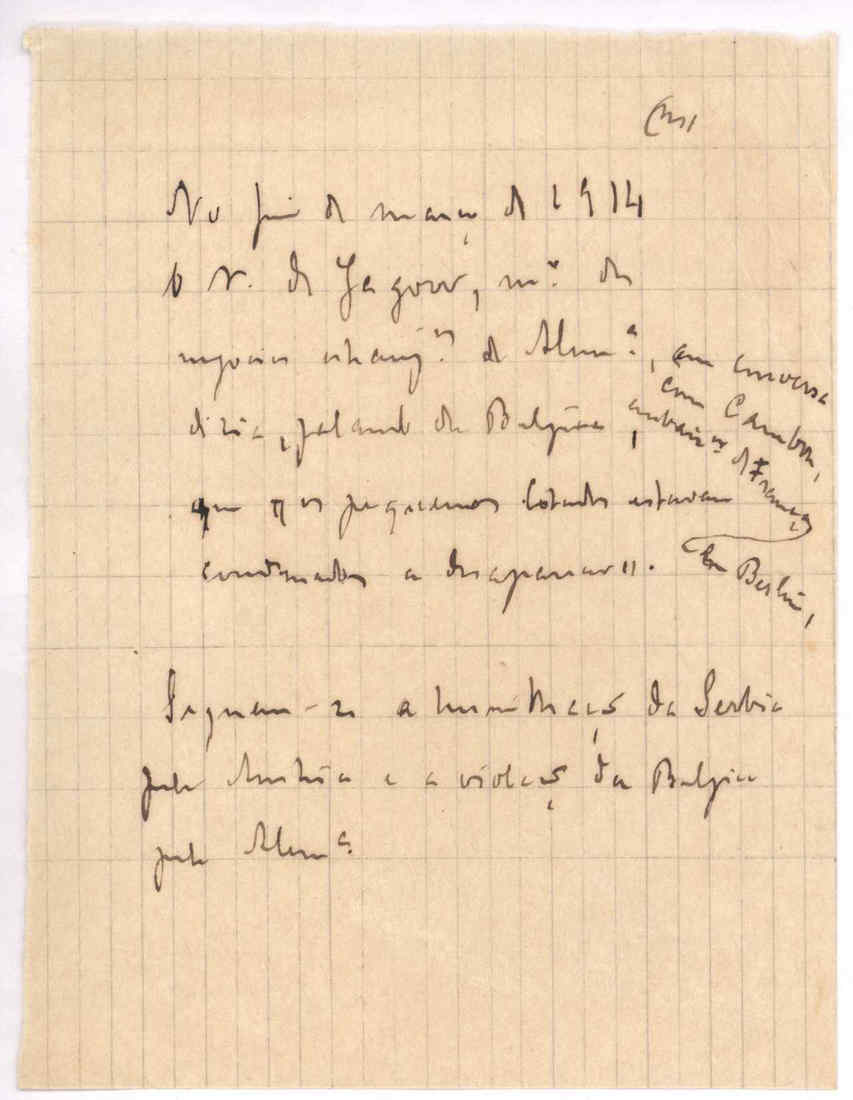 No fim de março de 1914
o V. de Jagow, m.º dos
negocios estrang.ros da Alem.ª, em conversa
com Cambon,
embaix.or de França
em Berlim,
dizia, falando da Belgica,
que os pequenos Estados estavam
condemnados a desaparecer.
Seguem-se a humilhação da Serbia
pela Austria e a violação da Belgica
pela Alem.ª